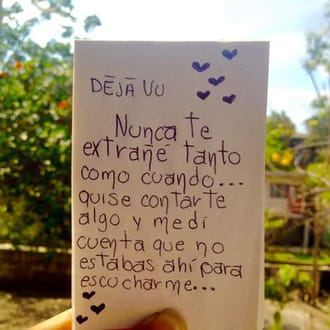 DĒJĀ VU
Nunca te
extrañé tanto
como cuando...
quise contarte
algo y medi
cuenta que no
estabas ahí para
escucharme...